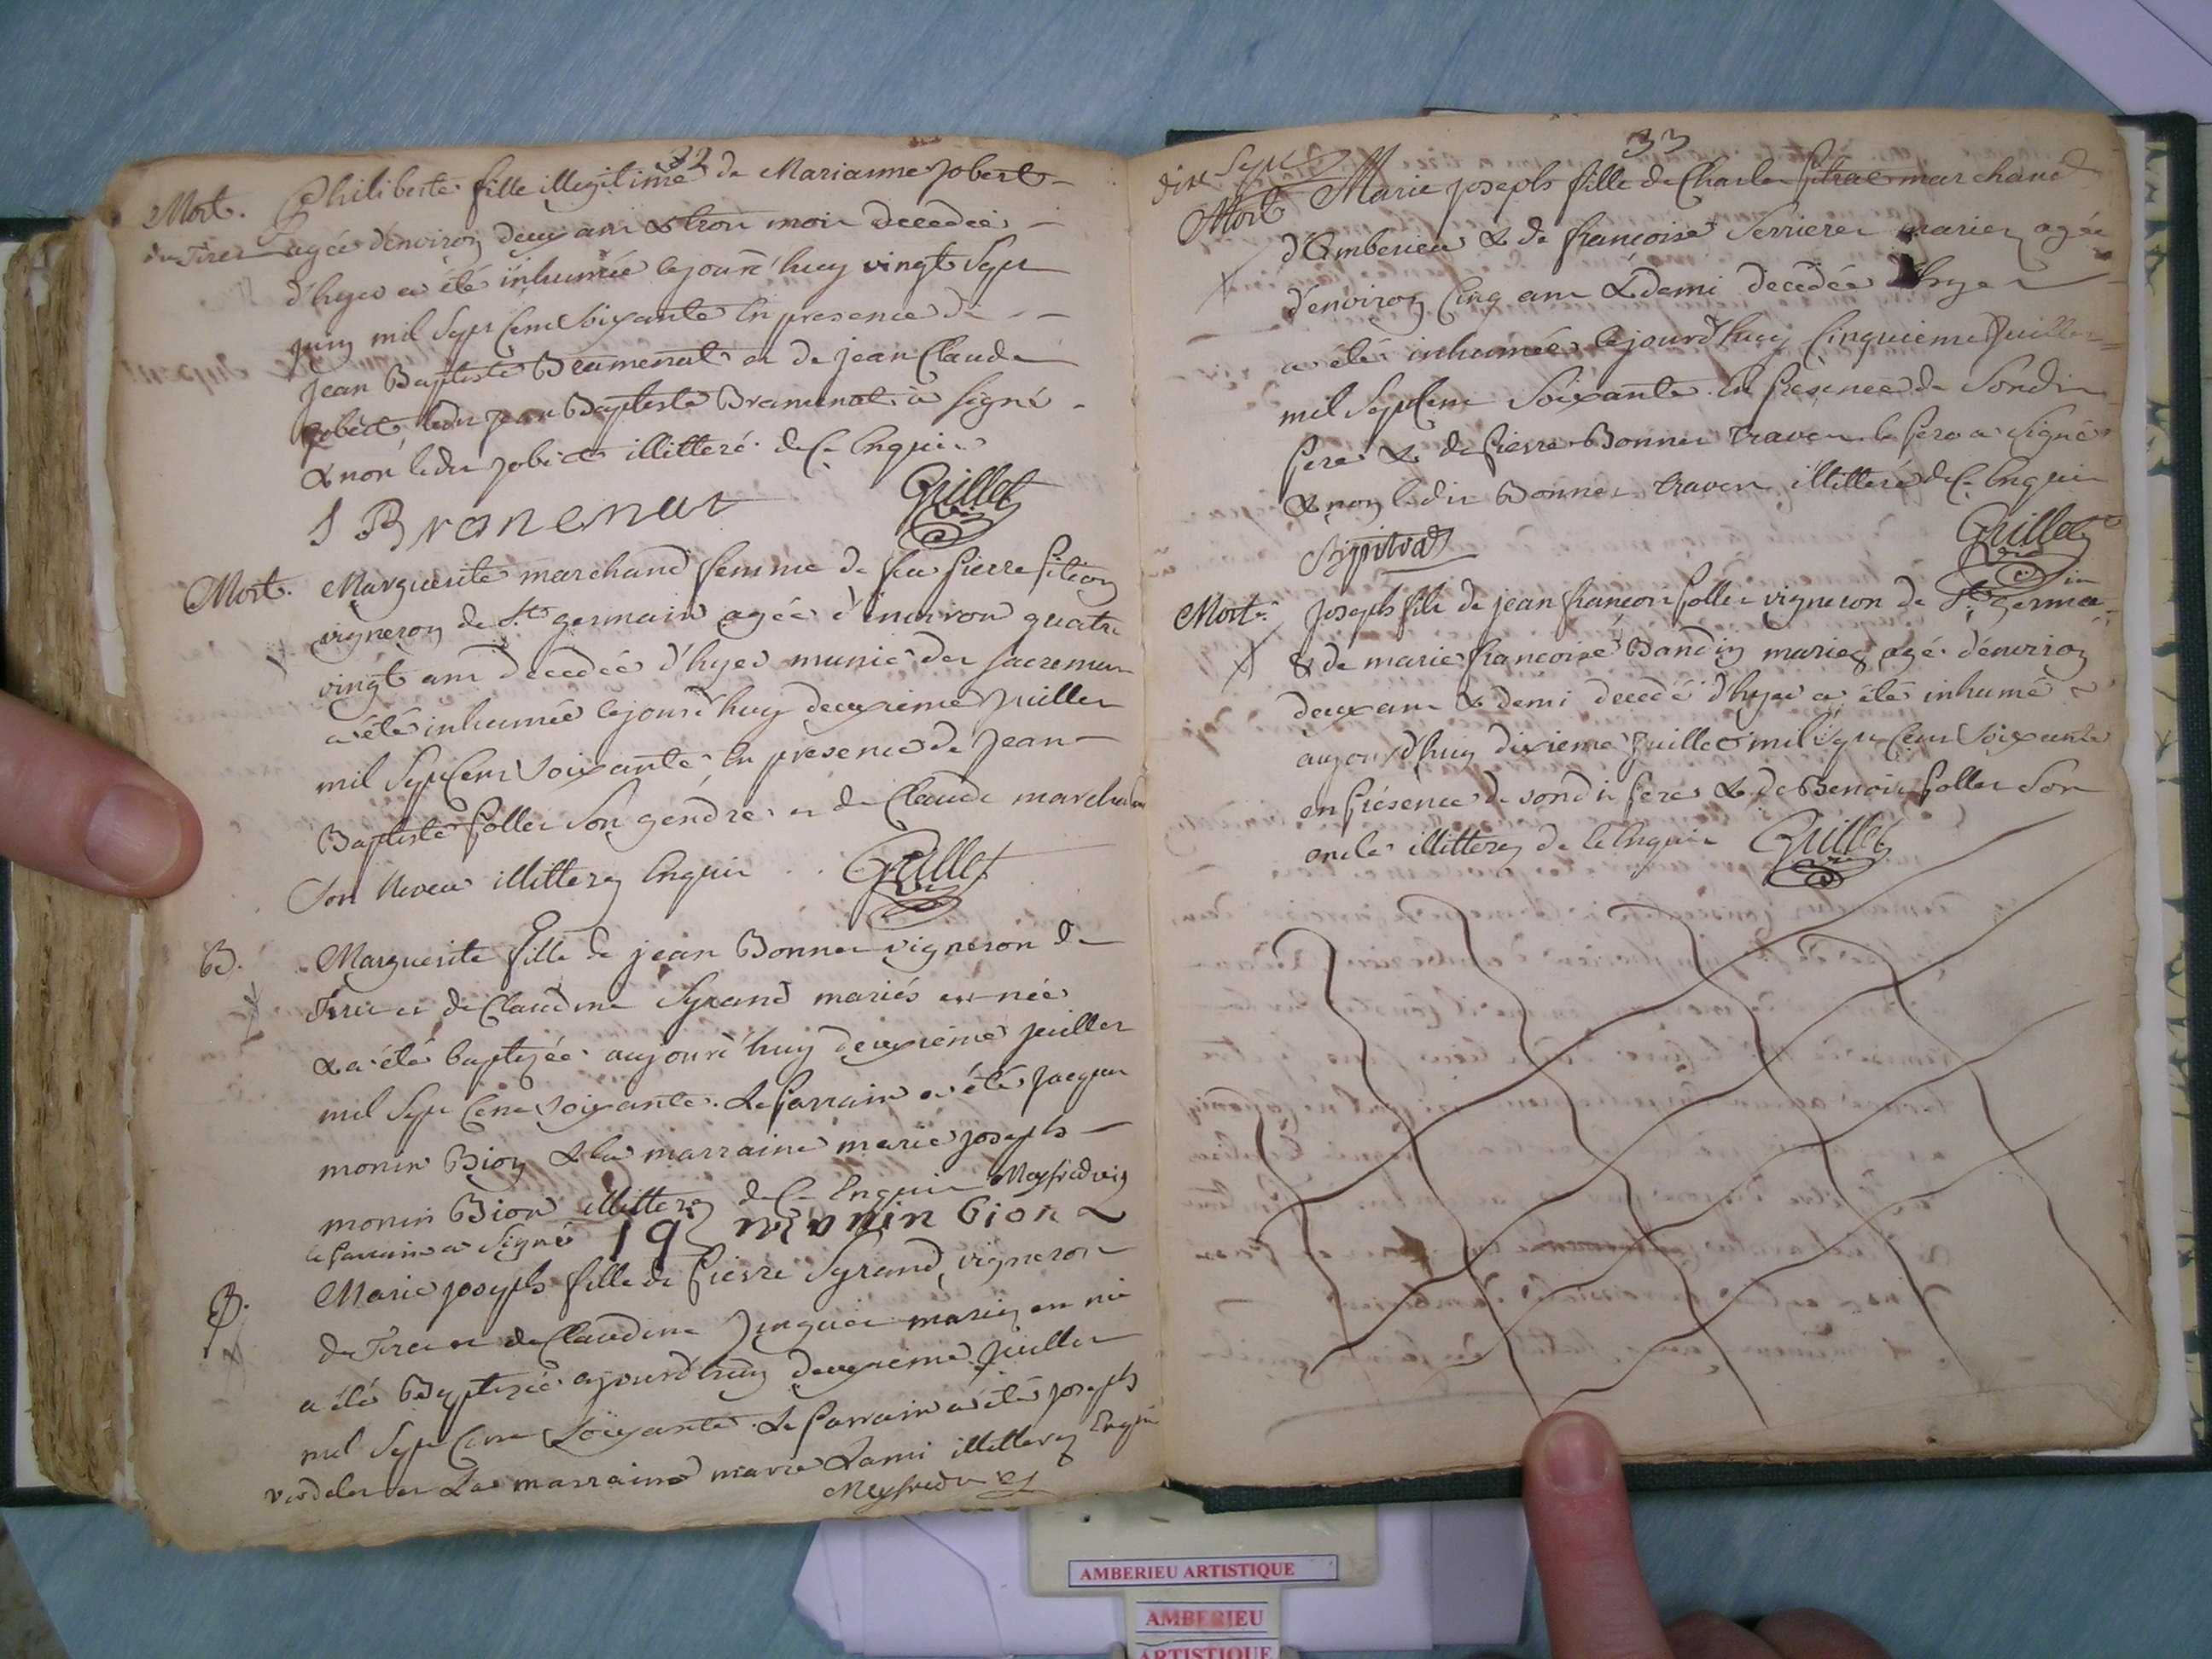 32
Mort. Philiberte fille illegitime de Marianne Jobert
du Tiret agée d'environ deux ans & trois mois decedée
d'hyer a été inhumée ce jourd'huy vingt sept
juin mil sept cent soixante en presence de
Jean Baptiste Bramenat et de jean Claude
Jobert ledit jean Baptiste Bramenat a signé
& non ledit jobert illitteré de ce enquis
J Branenat Grillet
Mort. Marguerite marchand femme de feu pierre
vigneron de St germain agée d'environ quatre
vingt ans decedée d'hyer munie des sacremens
a été inhumée ce jourd'huy deuxieme Juillet
mil sept cent soixante en presence de Jean
Baptiste follet son gendre et de Claude marchand
son Neveu illitterez enquis Grillet
B. Marguerite fille de jean Bonnet vigneron de
Tiret et de Claudine Syrand mariés est née
& a été baptizée aujourd'huy deuxieme juillet
mil sept cent soixante. Le parrain a été jacques
monin Bion & la marraine marie joseph
monin Bion illitterez de ce enquis
le parrain a signé monin bion
B. Marie joseph fille de pierre Syrand vigneron
de Tiret et de Claudine mariez est née
a été Baptizée aujourd'huy deuxieme juillet
mil sept cent soixante. Le parrain a été joseph
et La marraine marie Lami illitterez Enquis
33
dix sept
Mort Marie joseph fille de Charles marchand
d'Amberieu & de francoise mariez agée
d'environ cinq ans & demi decedée d'hyer
a été inhumée ce jourd'huy cinquieme Juillet
mil sept cent soixante en presence de son dit
pere & de pierre Bonnet Traven le pere a signé
& non ledit Bonnet traven illitteré de ce enquis
Grillet
Mort. Joseph fils de jean francois follet vigneron de St germain
& de marie francoise Bandin mariez agé d'environ
deux ans & demi decedé d'hyer a été inhumé
aujourd'huy dixieme Juillet mil sept cent soixante
en présence de son dit pere & de Benoit follet son
oncle illitterez de ce enquis Grillet
AMBERIEU ARTISTIQUE
AMBERIEU
ARTISTIQUE